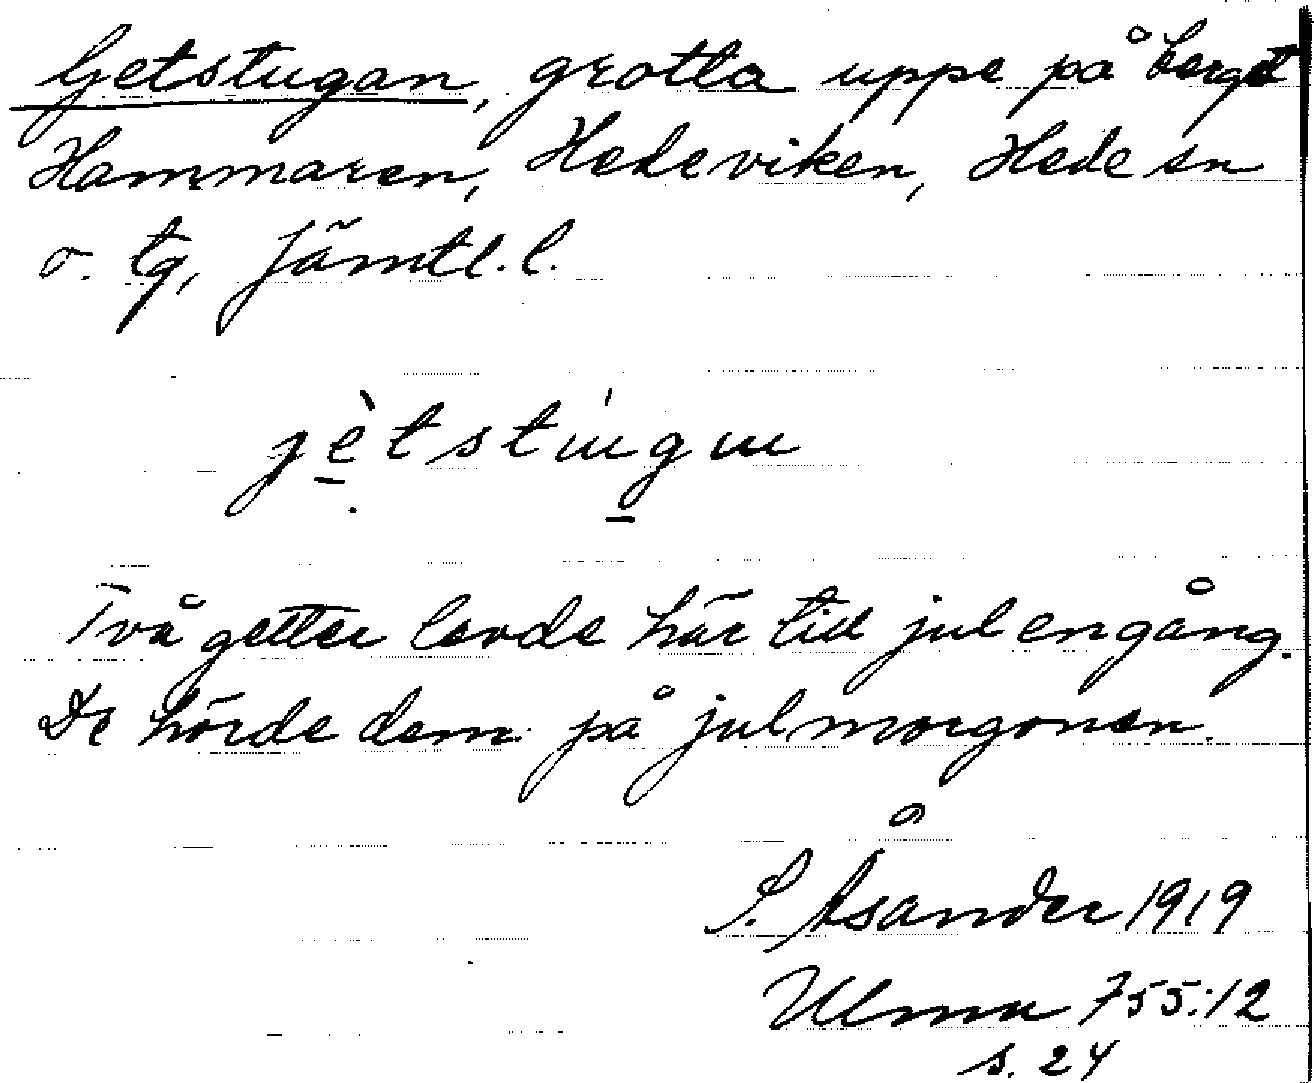 Getstugan, grotta uppe på berget
Hammaren, Hedeviken, Hede sn
o. tg, Jämtl. l.
jètstúgɯ
Två getter levde här tid jul engång.
De hörde dem på julmorgonen.
S. Åsander 1919
Ulma 755:12
s. 24